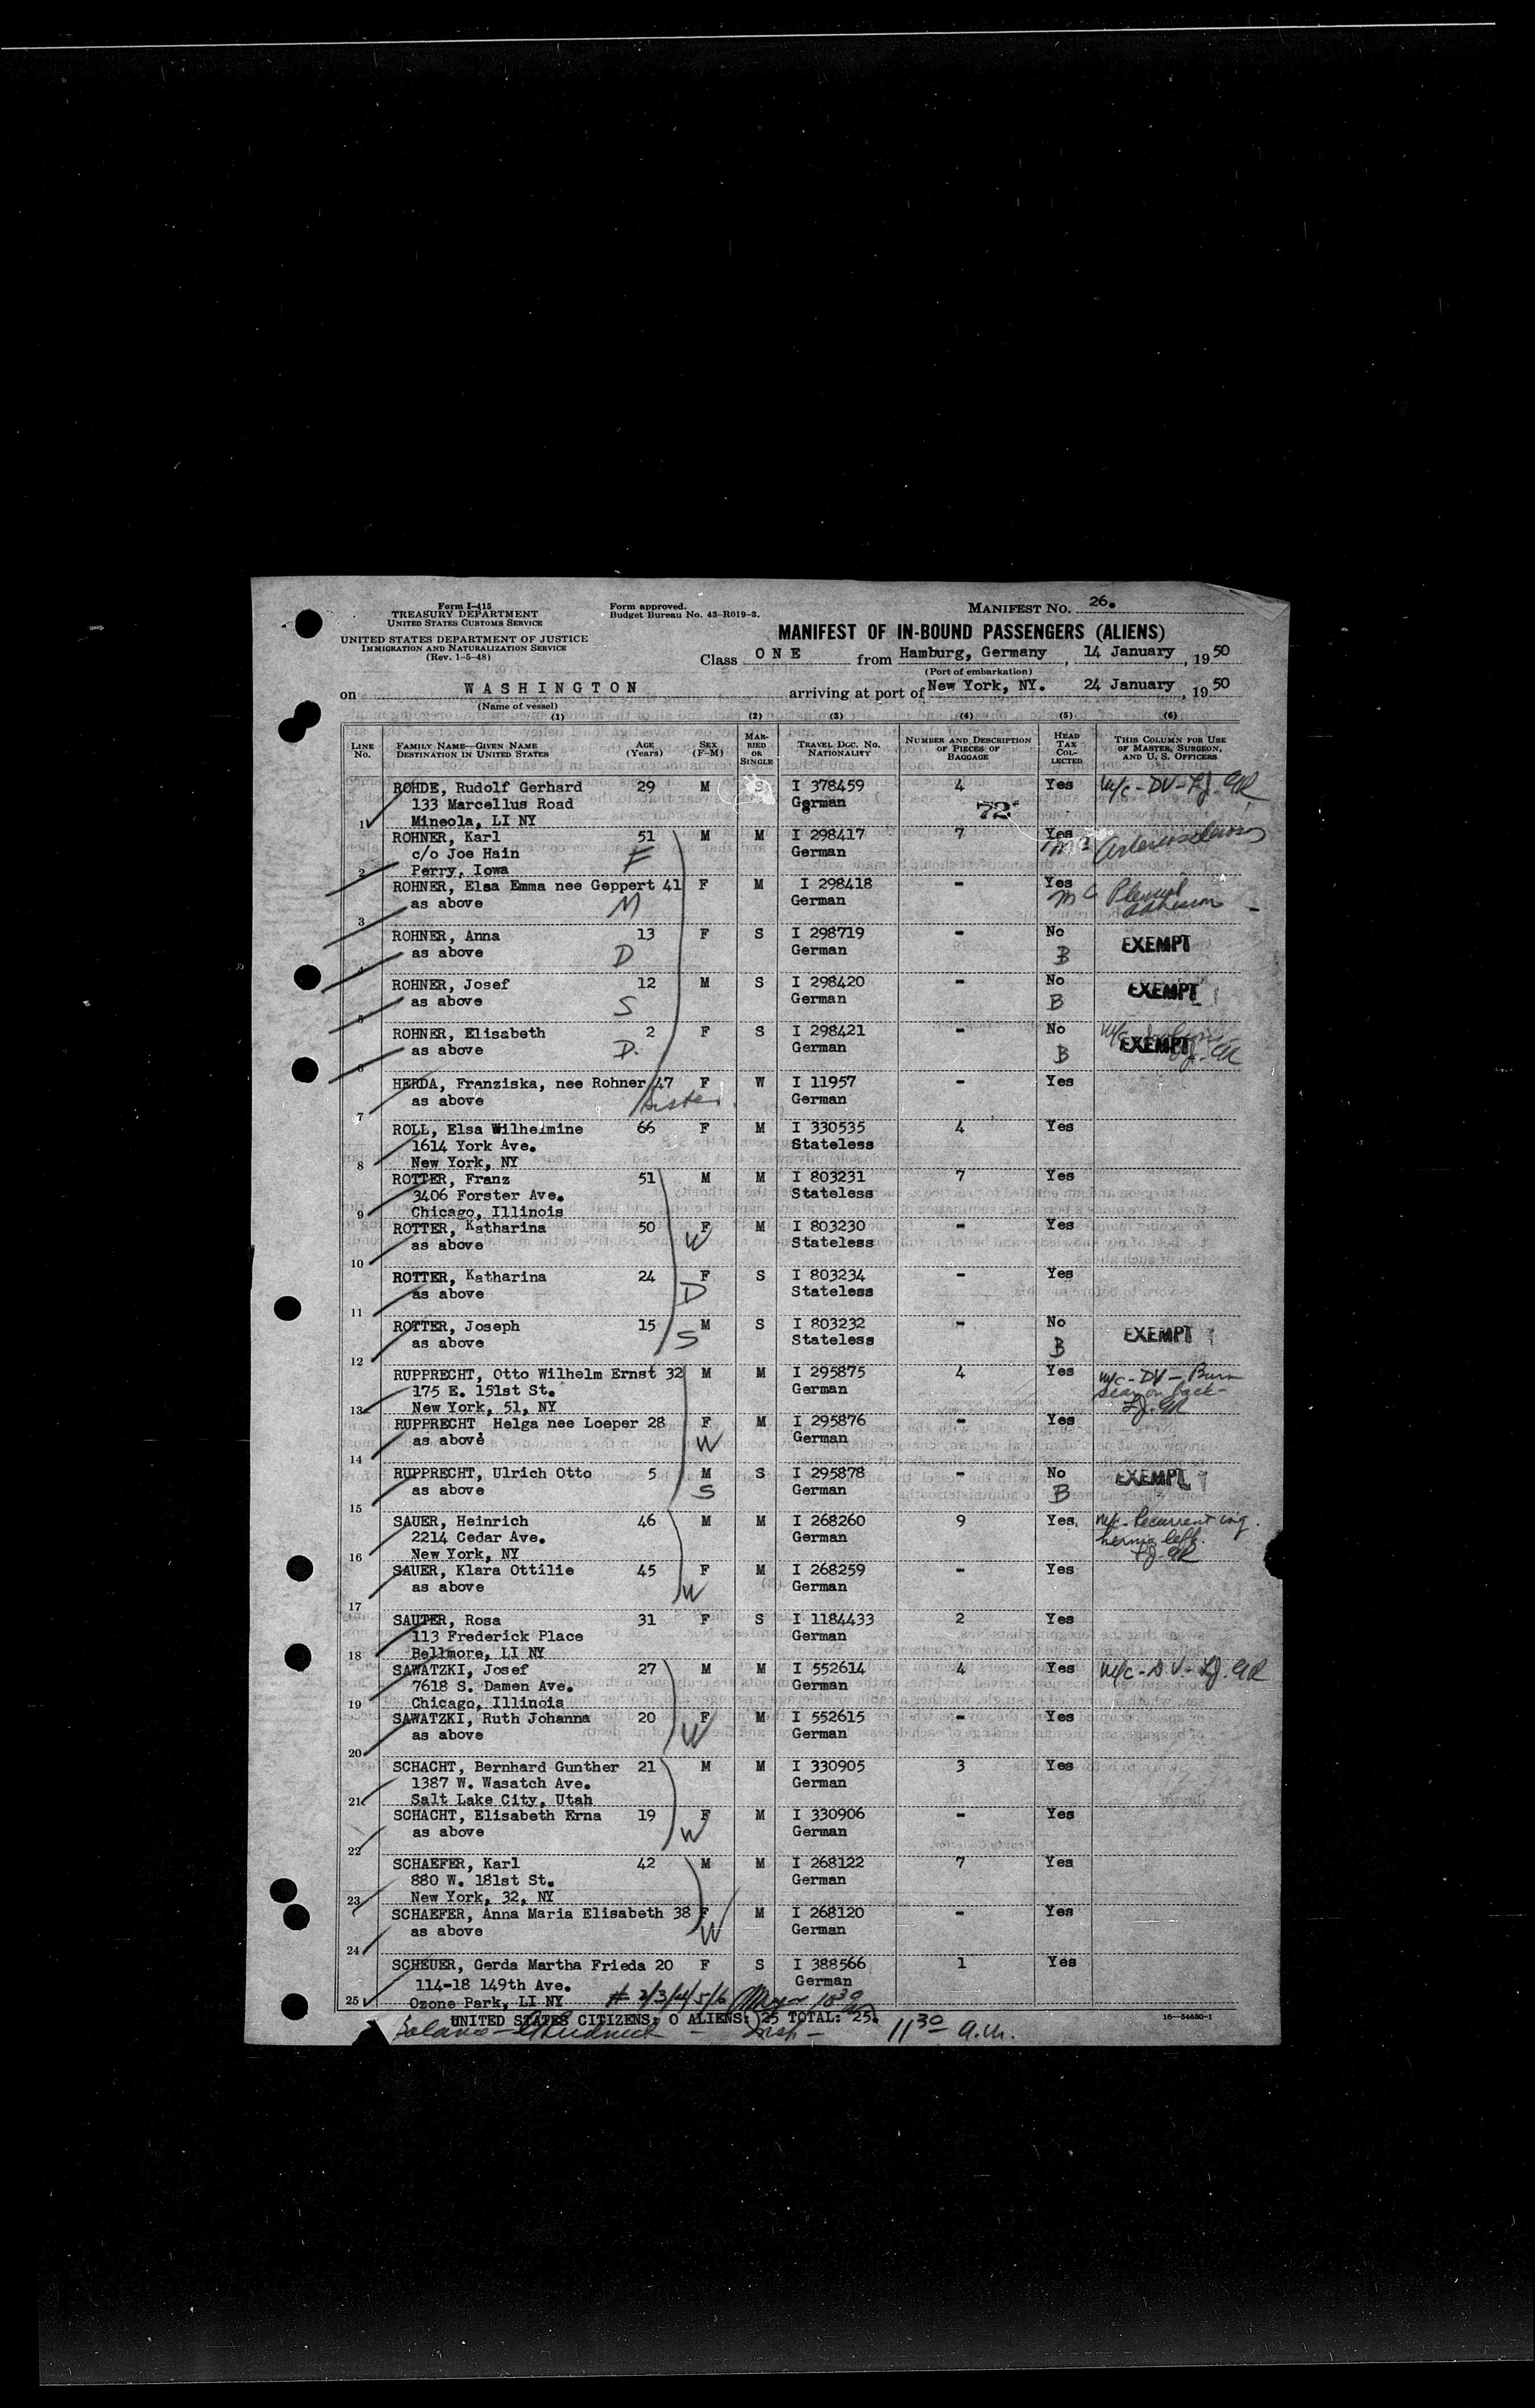 Form I-415
TREASURY DEPARTMENT
UNITED STATES CUSTOMS SERVICE
UNITED STATES DEPARTMENT OF JUSTICE
IMMIGRATION AND NATURALIZATION SERVICE
(Rev. 1-5-48)
Form approved.
Budget Bureau No. 43-R019-3.
MANIFEST NO. 26.
MANIFEST OF IN-BOUND PASSENGERS (ALIENS)
Class O N E from Hamburg, Germany, 14 January, 1950
(Port of embarkation)
on W A S H I N G T O N arriving at port of New York, NY. 24 January, 1950
(Name of vessel)
(1) (2) (3) (4) (5) (6)
LINE NO. FAMILY NAME—GIVEN NAME DESTINATION IN UNITED STATES AGE (Years) SEX (F-M) MARRIED OR SINGLE TRAVEL DOC. NO. NATIONALITY NUMBER AND DESCRIPTION OF PIECES OF BAGGAGE HEAD TAX COLLECTED THIS COLUMN FOR USE OF MASTER, SURGEON, AND U. S. OFFICERS
ROHDE, Rudolf Gerhard 29 M S I 378459 4 Yes M/C - DV -
133 Marcellus Road German 72
1 Mineola, LI NY
ROHNER, Karl 51 M M I 298417 7 Yes
c/o Joe Hain F German MC Arteriosclerosis
2 Perry, Iowa
ROHNER, Elsa Emma nee Geppert 41 F M I 298418 - Yes
as above M German MC Pleural adhesion
3
ROHNER, Anna 13 F S I 298719 - No
as above D German B EXEMPT
4
ROHNER, Josef 12 M S I 298420 - No
as above S German B EXEMPT
5
ROHNER, Elisabeth 2 F S I 298421 - No M/C
as above D. German B EXEMPT
6
HERDA, Franziska, nee Rohner 47 F W I 11957 - Yes
as above sister. German
7
ROLL, Elsa Wilhelmine 66 F M I 330535 4 Yes
1614 York Ave. Stateless
8 New York, NY
ROTTER, Franz 51 M M I 803231 7 Yes
3406 Forster Ave. Stateless
9 Chicago, Illinois
ROTTER, Katharina 50 F M I 803230 - Yes
as above W Stateless
10
ROTTER, Katharina 24 F S I 803234 - Yes
as above D Stateless
11
ROTTER, Joseph 15 M S I 803232 - No
as above S Stateless B EXEMPT
12
RUPPRECHT, Otto Wilhelm Ernst 32 M M I 295875 4 Yes M/C - DV - Burn
175 E. 151st St. German scar on back -
13 New York, 51, NY
RUPPRECHT, Helga nee Loeper 28 F M I 295876 - Yes
as above W German
14
RUPPRECHT, Ulrich Otto 5 M S I 295878 - No EXEMPT
as above S German B
15
SAUER, Heinrich 46 M M I 268260 9 Yes M/C - Recurrent ing.
2214 Cedar Ave. German hernia left
16 New York, NY
SAUER, Klara Ottilie 45 F M I 268259 - Yes
as above W German
17
SAUTER, Rosa 31 F S I 1184433 2 Yes
113 Frederick Place German
18 Bellmore, LI NY
SAWATZKI, Josef 27 M M I 552614 4 Yes M/C - D.V. -
7618 S. Damen Ave. German
19 Chicago, Illinois
SAWATZKI, Ruth Johanna 20 F M I 552615 - Yes
as above W German
20
SCHACHT, Bernhard Gunther 21 M M I 330905 3 Yes
1387 W. Wasatch Ave. German
21 Salt Lake City, Utah
SCHACHT, Elisabeth Erna 19 F M I 330906 - Yes
as above W German
22
SCHAEFER, Karl 42 M M I 268122 7 Yes
880 W. 181st St. German
23 New York, 32, NY
SCHAEFER, Anna Maria Elisabeth 38 F M I 268120 - Yes
as above W German
24
SCHEUER, Gerda Martha Frieda 20 F S I 388566 1 Yes
114-18 149th Ave. German
25 Ozone Park, LI NY # 2/3/4/5/6 10 30
UNITED STATES CITIZENS: 0 ALIENS: 25 TOTAL: 25.
11 30 a.m.
16—54650-1